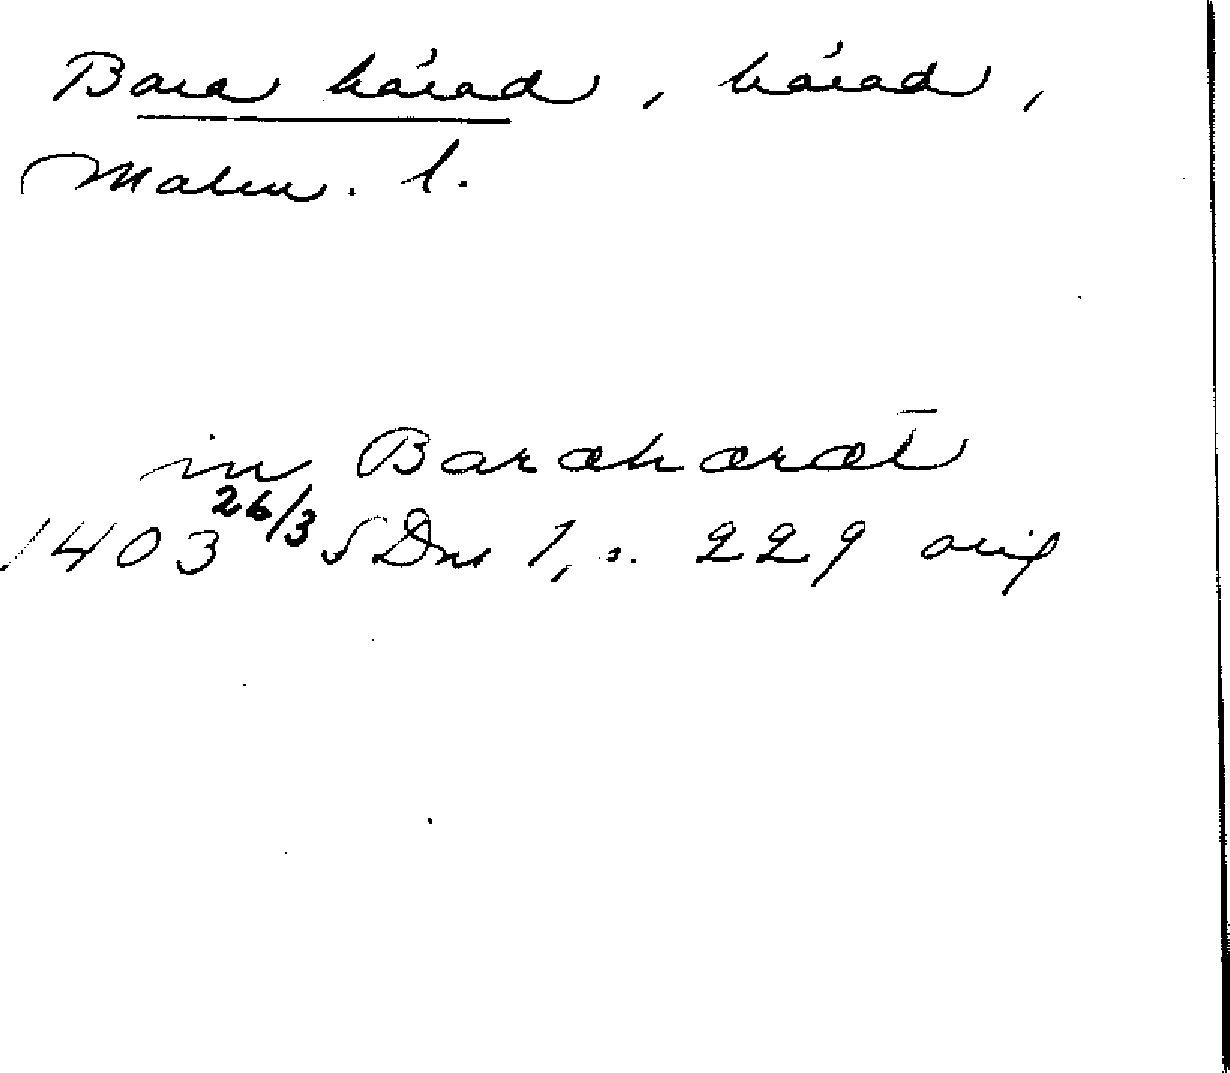 Bara härad, härad,
Malm. l.
in Barahæræt
1403 26/3 SDns 1, s. 229 orig